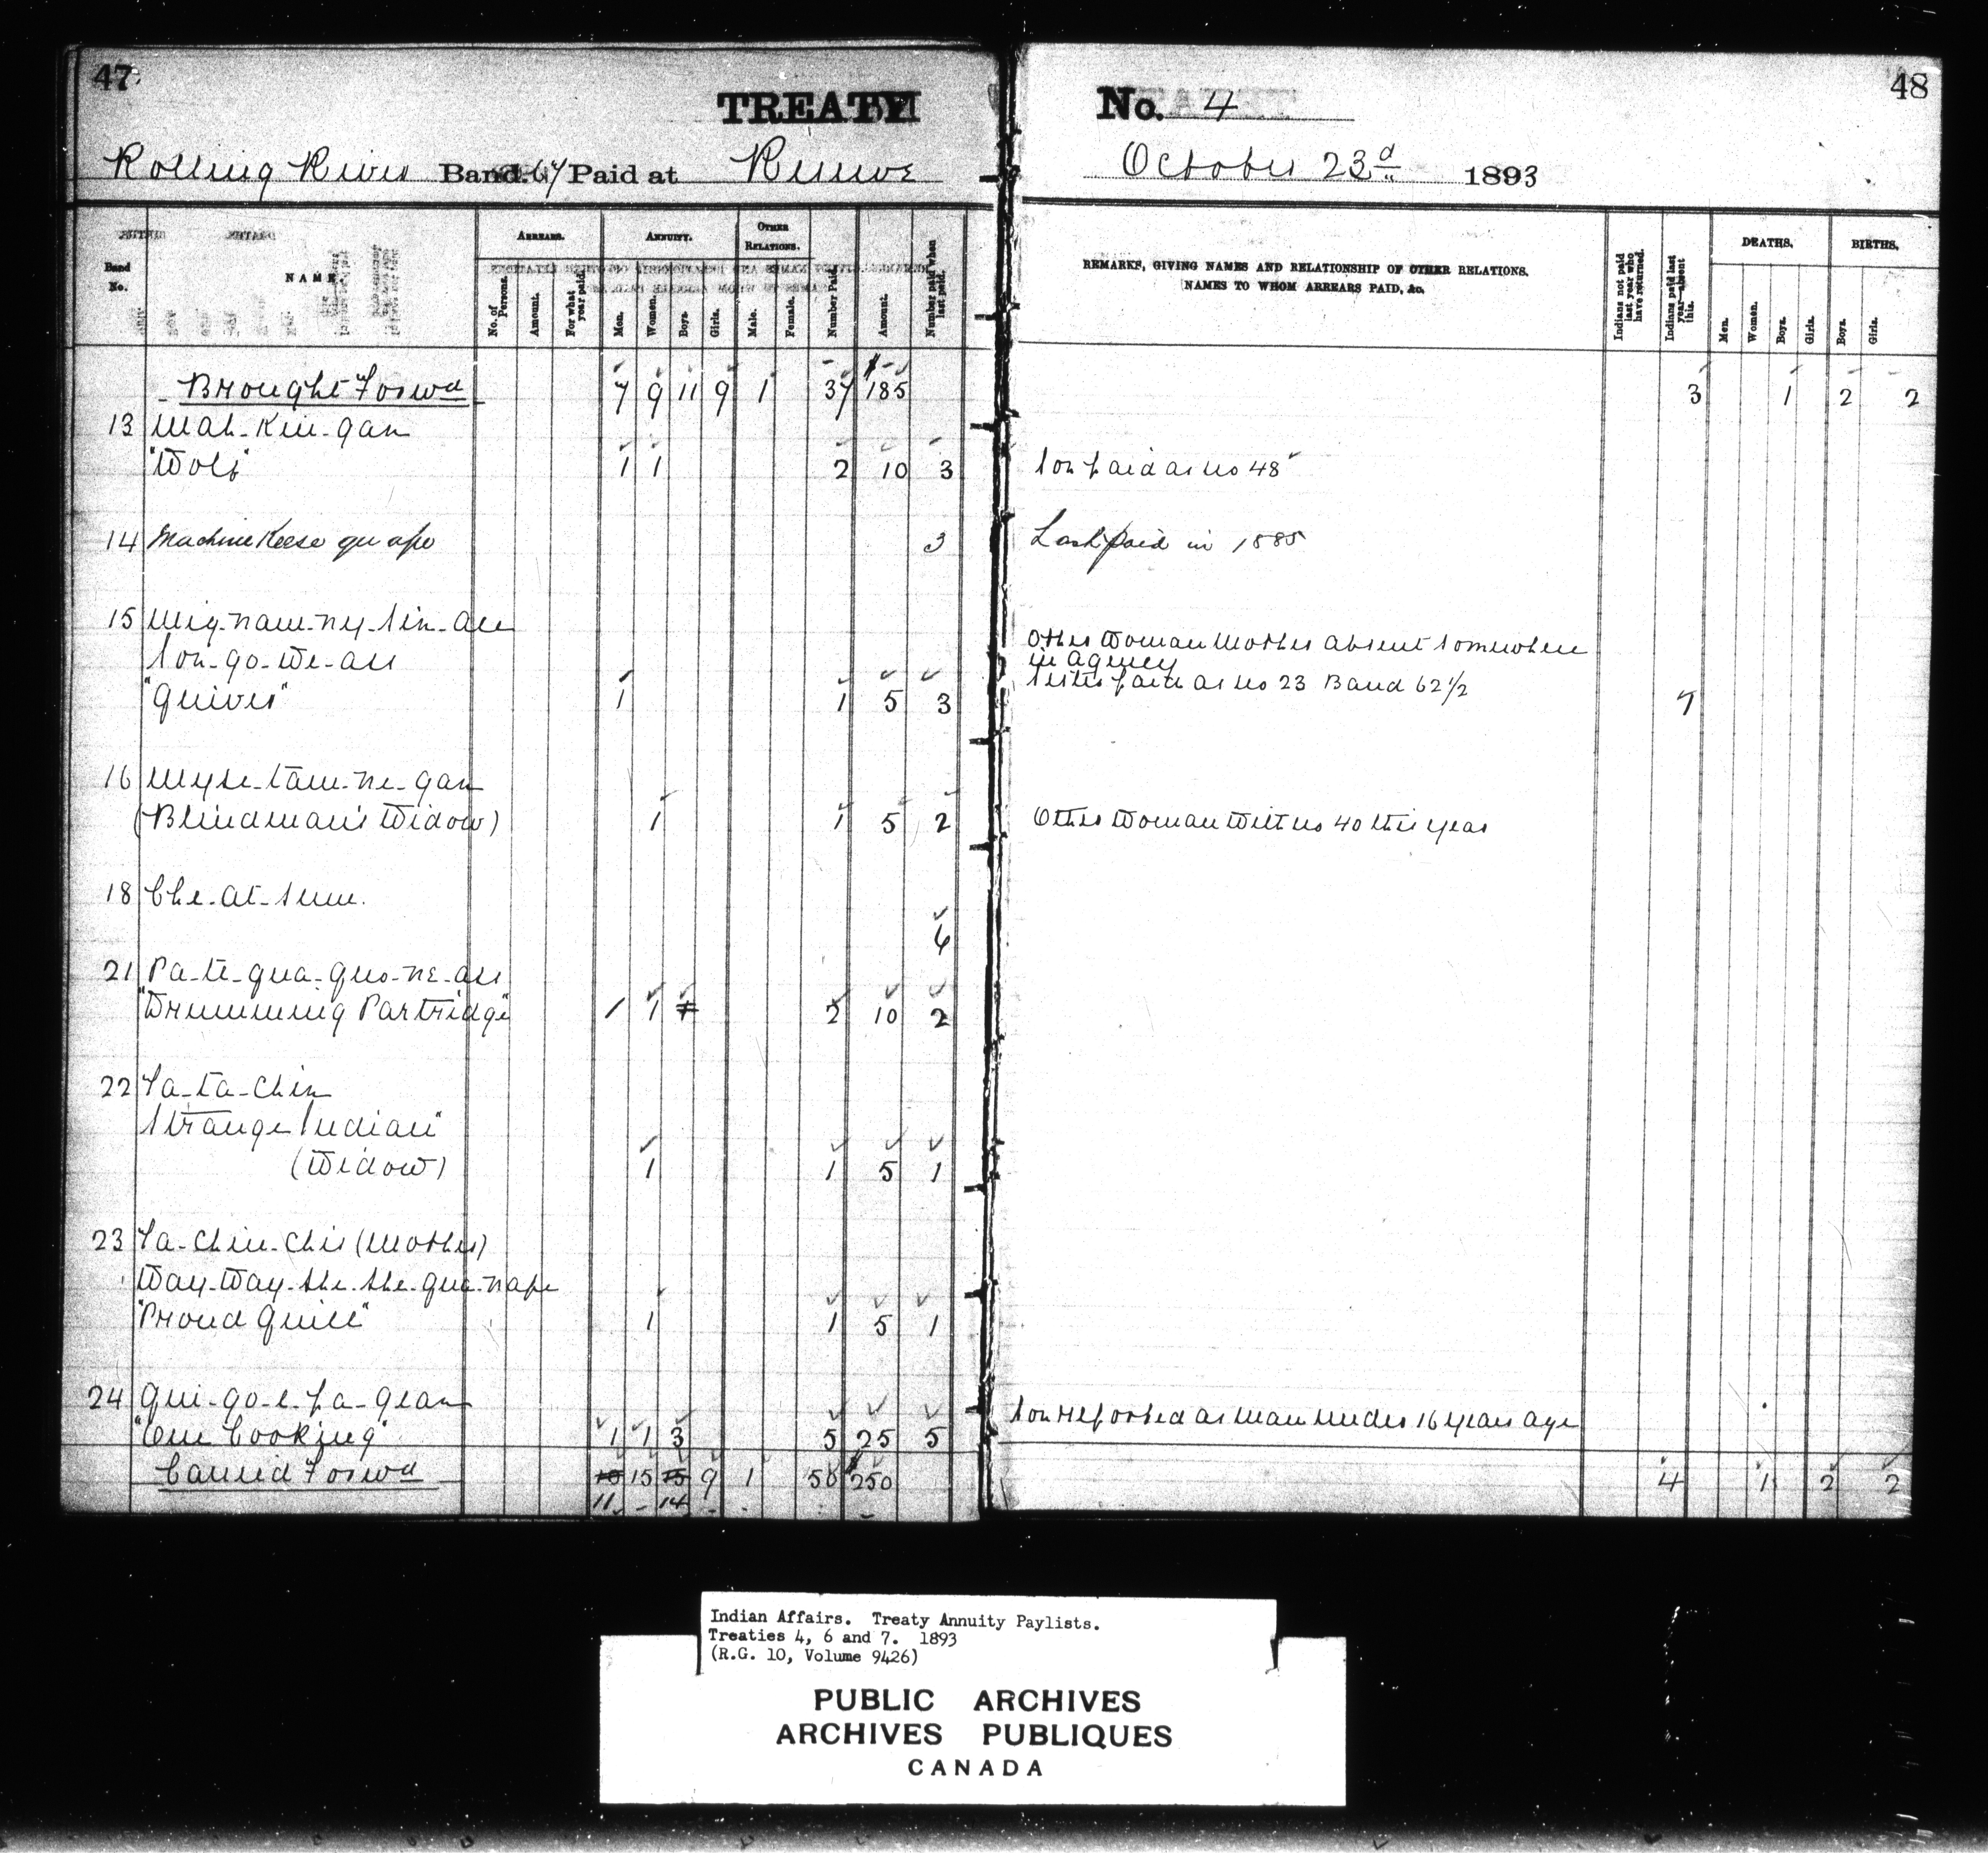 47
TREATY No. 4
48
Rolling River Band. 67 Paid at
October 23d 1893
Band No.
NAME.
ARREARS.
No. of Persons.
Amount.
For what year paid.
ANNUITY.
Men.
Women.
Boys.
Girls.
OTHER RELATIONS.
Male.
Female.
Number Paid.
Amount.
Number paid when last paid.
REMARKS, GIVING NAMES AND RELATIONSHIP OF OTHER RELATIONS.
NAMES TO WHOM ARREARS PAID, &c.
Indians not paid last year who have returned.
Indians paid last year—absent this.
DEATHS.
Men.
Women.
Boys.
Girls.
BIRTHS.
Boys.
Girls.
Brought Forwd 7 9 11 9 1 37 $185 3 1 2 2
13 Mah-Kin-gan
"Wolf" 1 1 2 10 3 Son paid as No 48
14 3 Last paid in 1885
15
Son-go-We-an Other Woman Mother absent somewhere in agency
"Quiver" 1 1 5 3 Sister paid as No 23 Band 62½ 1
16 Myse-tam-ne-gan
(Blindman's Widow) 1 1 5 2 Other Woman With No 40 this year
18 Che-at-sum.
6
21 Pa-te-qua-quo-ne-an
"Drumming Partridge" 1 1 1 2 10 2
22 Ta-ta-chin
Strange Indian"
(Widow) 1 1 5 1
23 (Mother)
Way-Way-she-she-qua-nape
"Proud Quill" 1 1 5 1
24 Qui-go-e-pa-gean
"One Cooking" 1 1 3 5 25 5 Son reported as Man under 16 years age
Carried Forwd 10 15 15 9 1 50 $250 4 1 2 2
11 14
Indian Affairs. Treaty Annuity Paylists.
Treaties 4, 6 and 7. 1893
(R.G. 10, Volume 9426)
PUBLIC ARCHIVES
ARCHIVES PUBLIQUES
CANADA